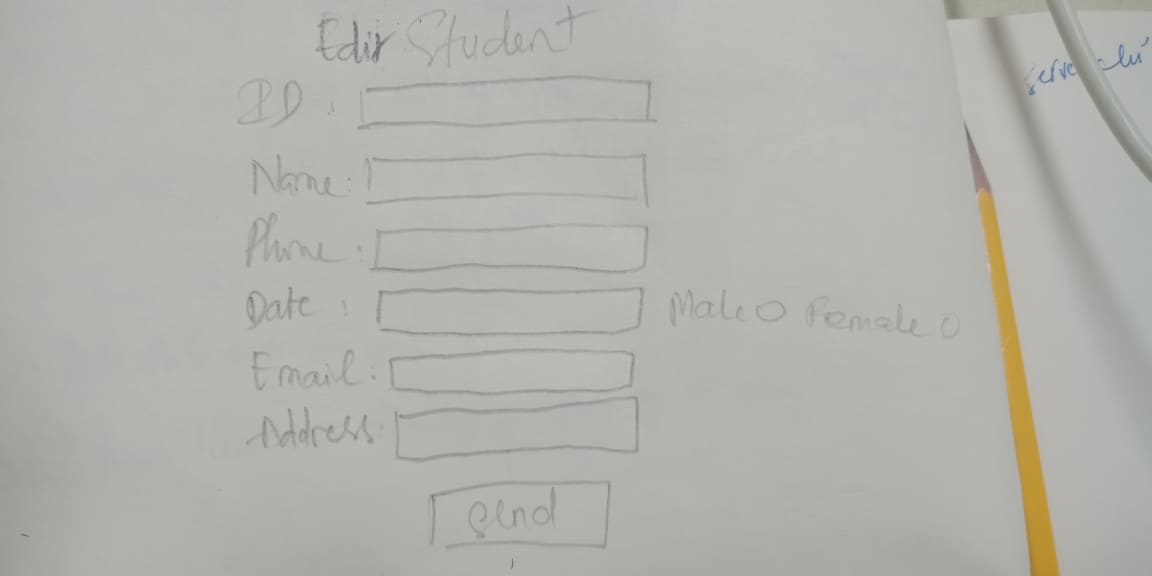 Edit Student
ID :
Name :
Phone :
Date : Male Female
Email :
Address :
Send